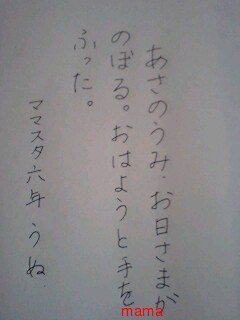 あさのうみ.お日さまが
のぼる。おはようと手を
ふった。
ママスタ六年 うぬ.
mama